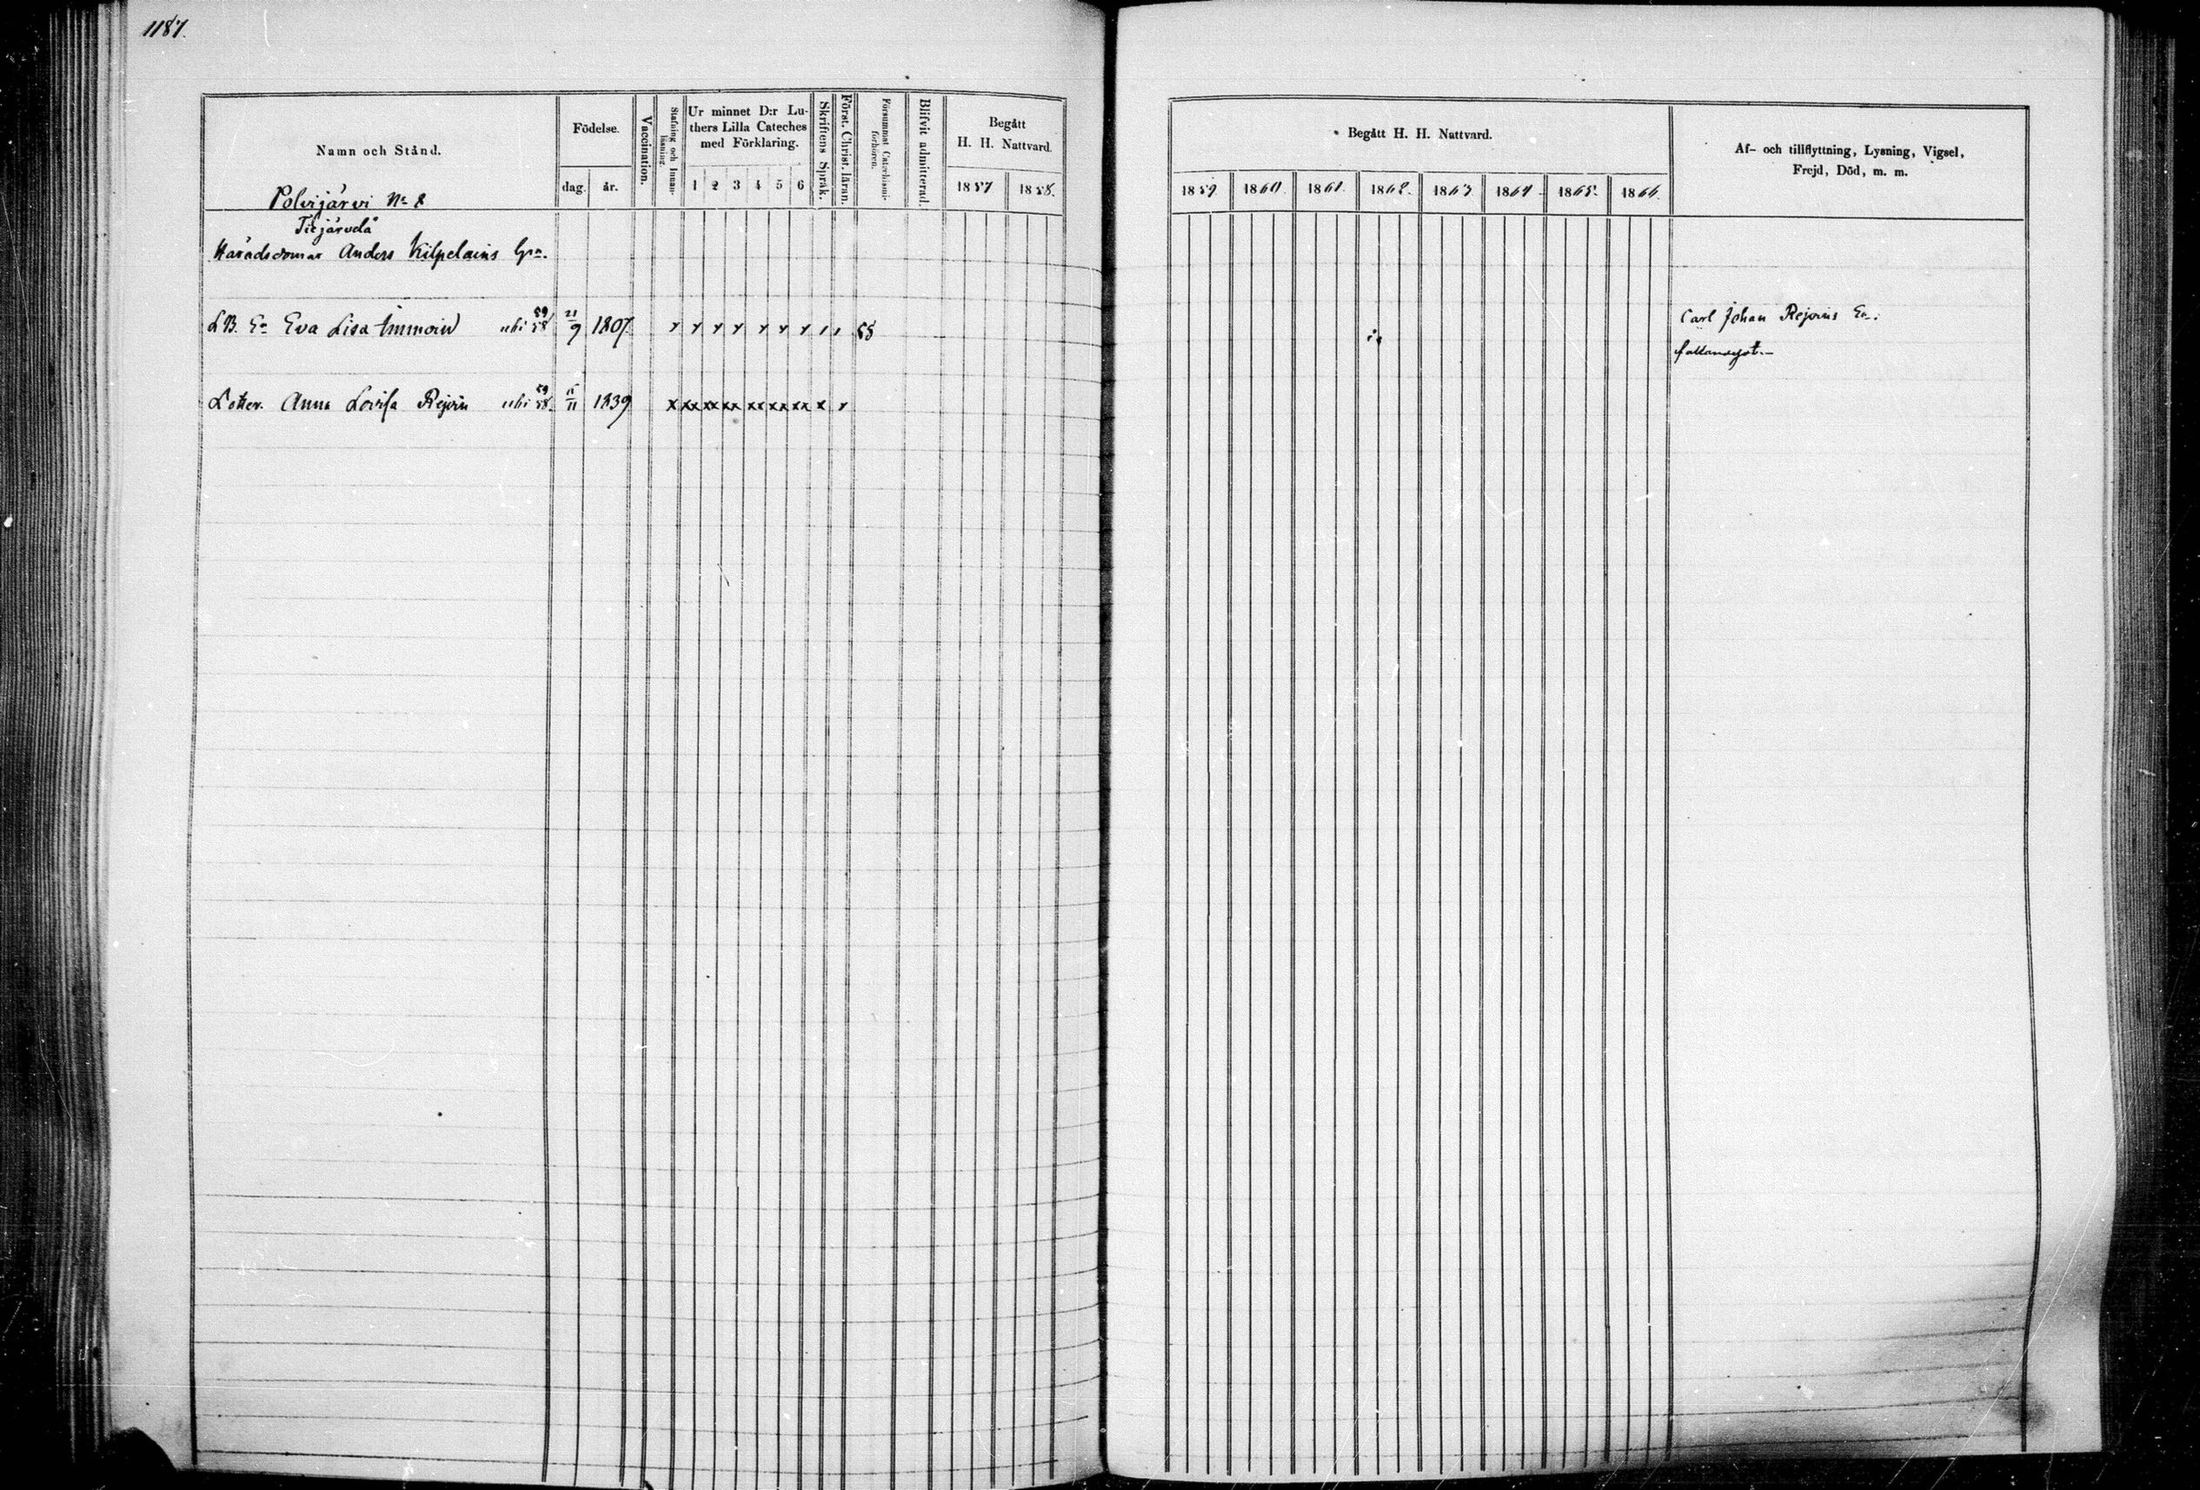 1187.
Namn och Stånd.
Födelse.
dag.
år.
Vaccination.
Stafning och Innan-
läsning.
Ur minnet D:r Lu-
thers Lilla Cateches
med Förklaring.
1 2 3 4 5 6
Skriftens Språk.
Först. Christ. läran.
Försummat Catechismi-
förhören.
Blifvit admitterad.
Begått
H. H. Nattvard.
1857 1858.
Polvijärvi No 8
Häradsdomar Anders Kilpelains
Eva Lisa Immoin 59 58 21/9 1807. 55
Anna Lovisa Rejoin 59 58. 11 1839
Begått H. H. Nattvard.
1859 1860. 1861. 1862. 1863. 1864. 1865. 1866.
Af- och tillflyttning, Lysning, Vigsel,
Frejd, Död, m. m.
Carl Johan Rejoins En.